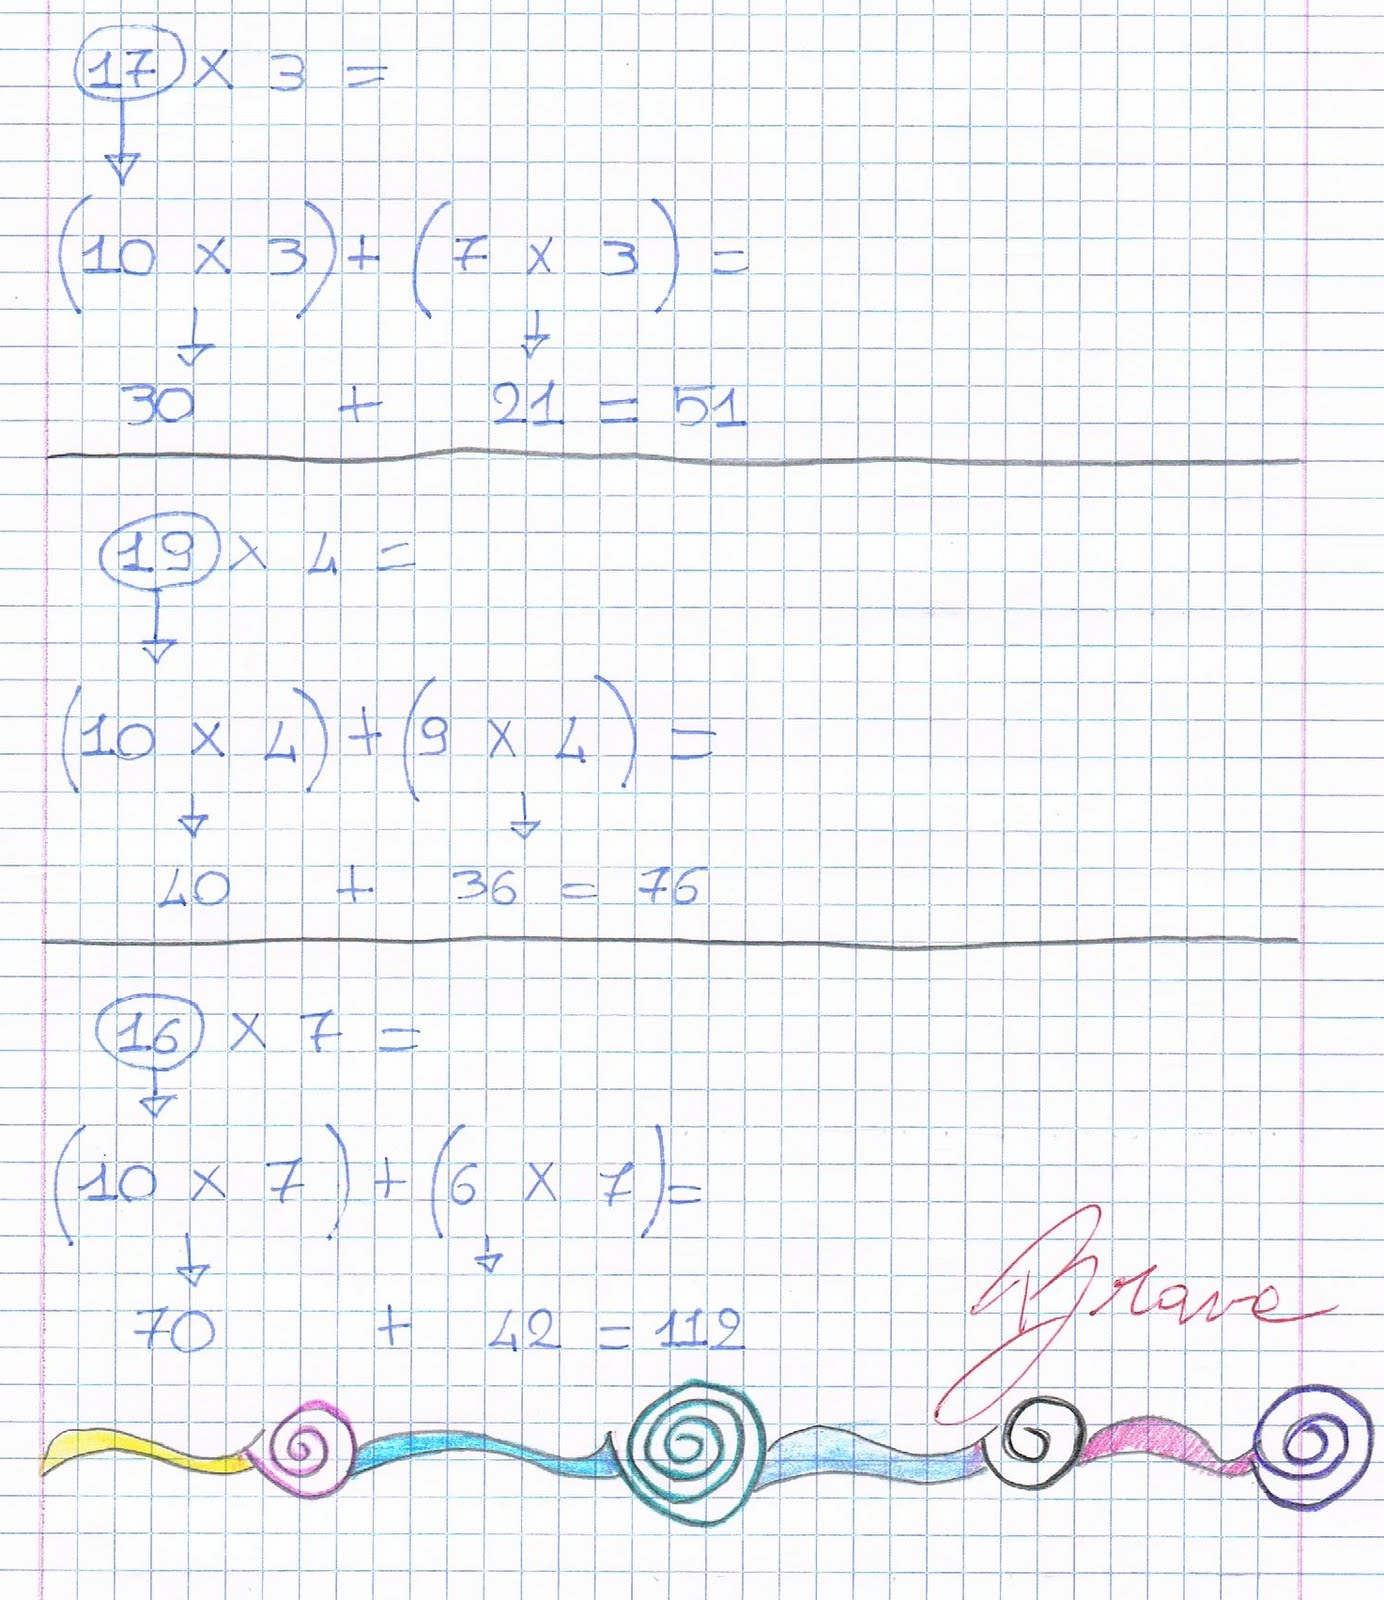 17 × 3 =
(10 × 3) + (7 × 3) =
30 + 21 = 51
19 × 4 =
(10 × 4) + (9 × 4) =
40 + 36 = 76
16 × 7 =
(10 × 7) + (6 × 7) =
70 + 42 = 112
Brava